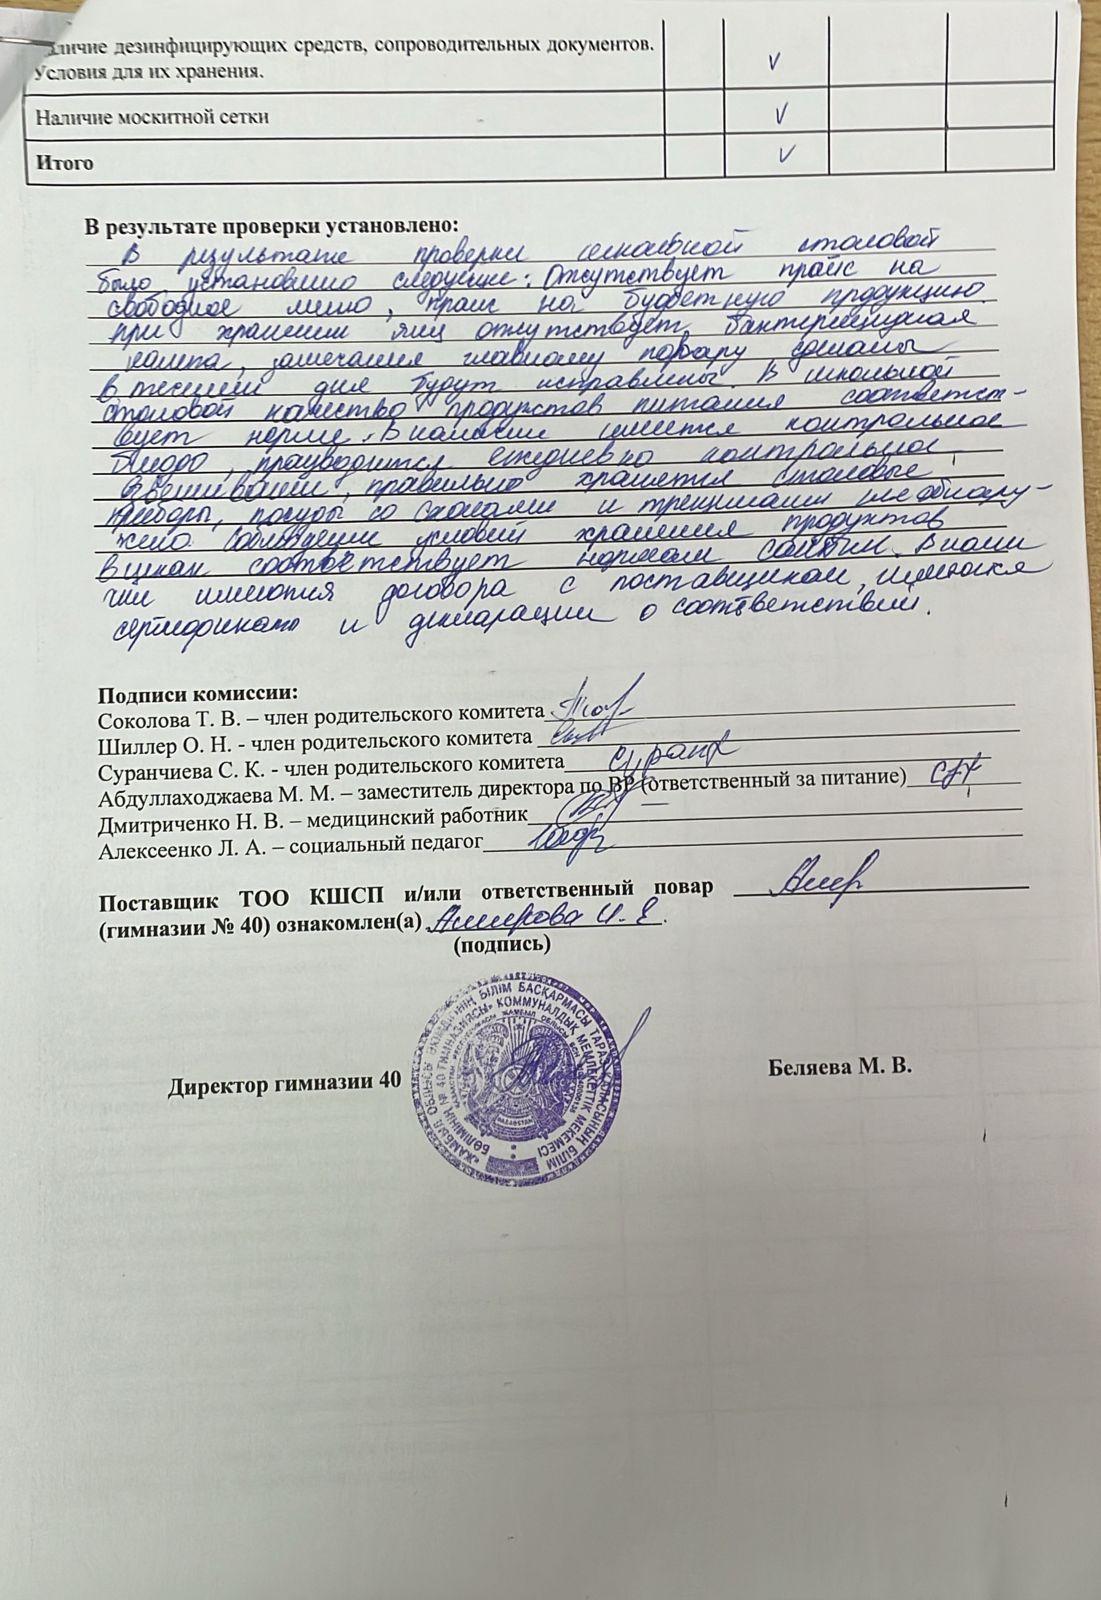 личие дезинфицирующих средств, сопроводительных документов.
Условия для их хранения.
Наличие москитной сетки
Итого
В результате проверки установлено:
В результате проверки школьной столовой
было установлено следующие: Отсутствует прайс на
свободное меню, прайс на буфетную продукцию.
при хранении яиц отсутствует бактерицидная
лампа, замечания главному повару сделаны
в течении дня будут исправлены. В школьной
столовой качество продуктов питания соответст-
вует норме. В наличии имеется контрольное
блюдо, проводится ежедневно контрольное
взвешивание, правильно хранятся столовые
приборы, посуды со сколами и трещинами не обнару-
жено. Соблюдении условий хранения продуктов
в цехах соответствует нормам СанПин. В нали
чии имеются договора с поставщиком, имеются
сертификаты и декларации о соответствии.
Подписи комиссии:
Соколова Т. В. – член родительского комитета
Шиллер О. Н. - член родительского комитета
Суранчиева С. К. - член родительского комитета Суранч
Абдуллаходжаева М. М. – заместитель директора по ВР (ответственный за питание)
Дмитриченко Н. В. – медицинский работник
Алексеенко Л. А. – социальный педагог
Поставщик ТОО КШСП и/или ответственный повар Амир
(гимназии № 40) ознакомлен(а) Амирова И. Е.
(подпись)
Директор гимназии 40
Беляева М. В.
БІЛІМ БАСҚАРМАСЫ ТАРАЗ ҚАЛАСЫНЫҢ БІЛІМ
БӨЛІМІНІҢ № 40 ГИМНАЗИЯСЫ» КОММУНАЛДЫҚ МЕМЛЕКЕТТІК МЕКЕМЕСІ